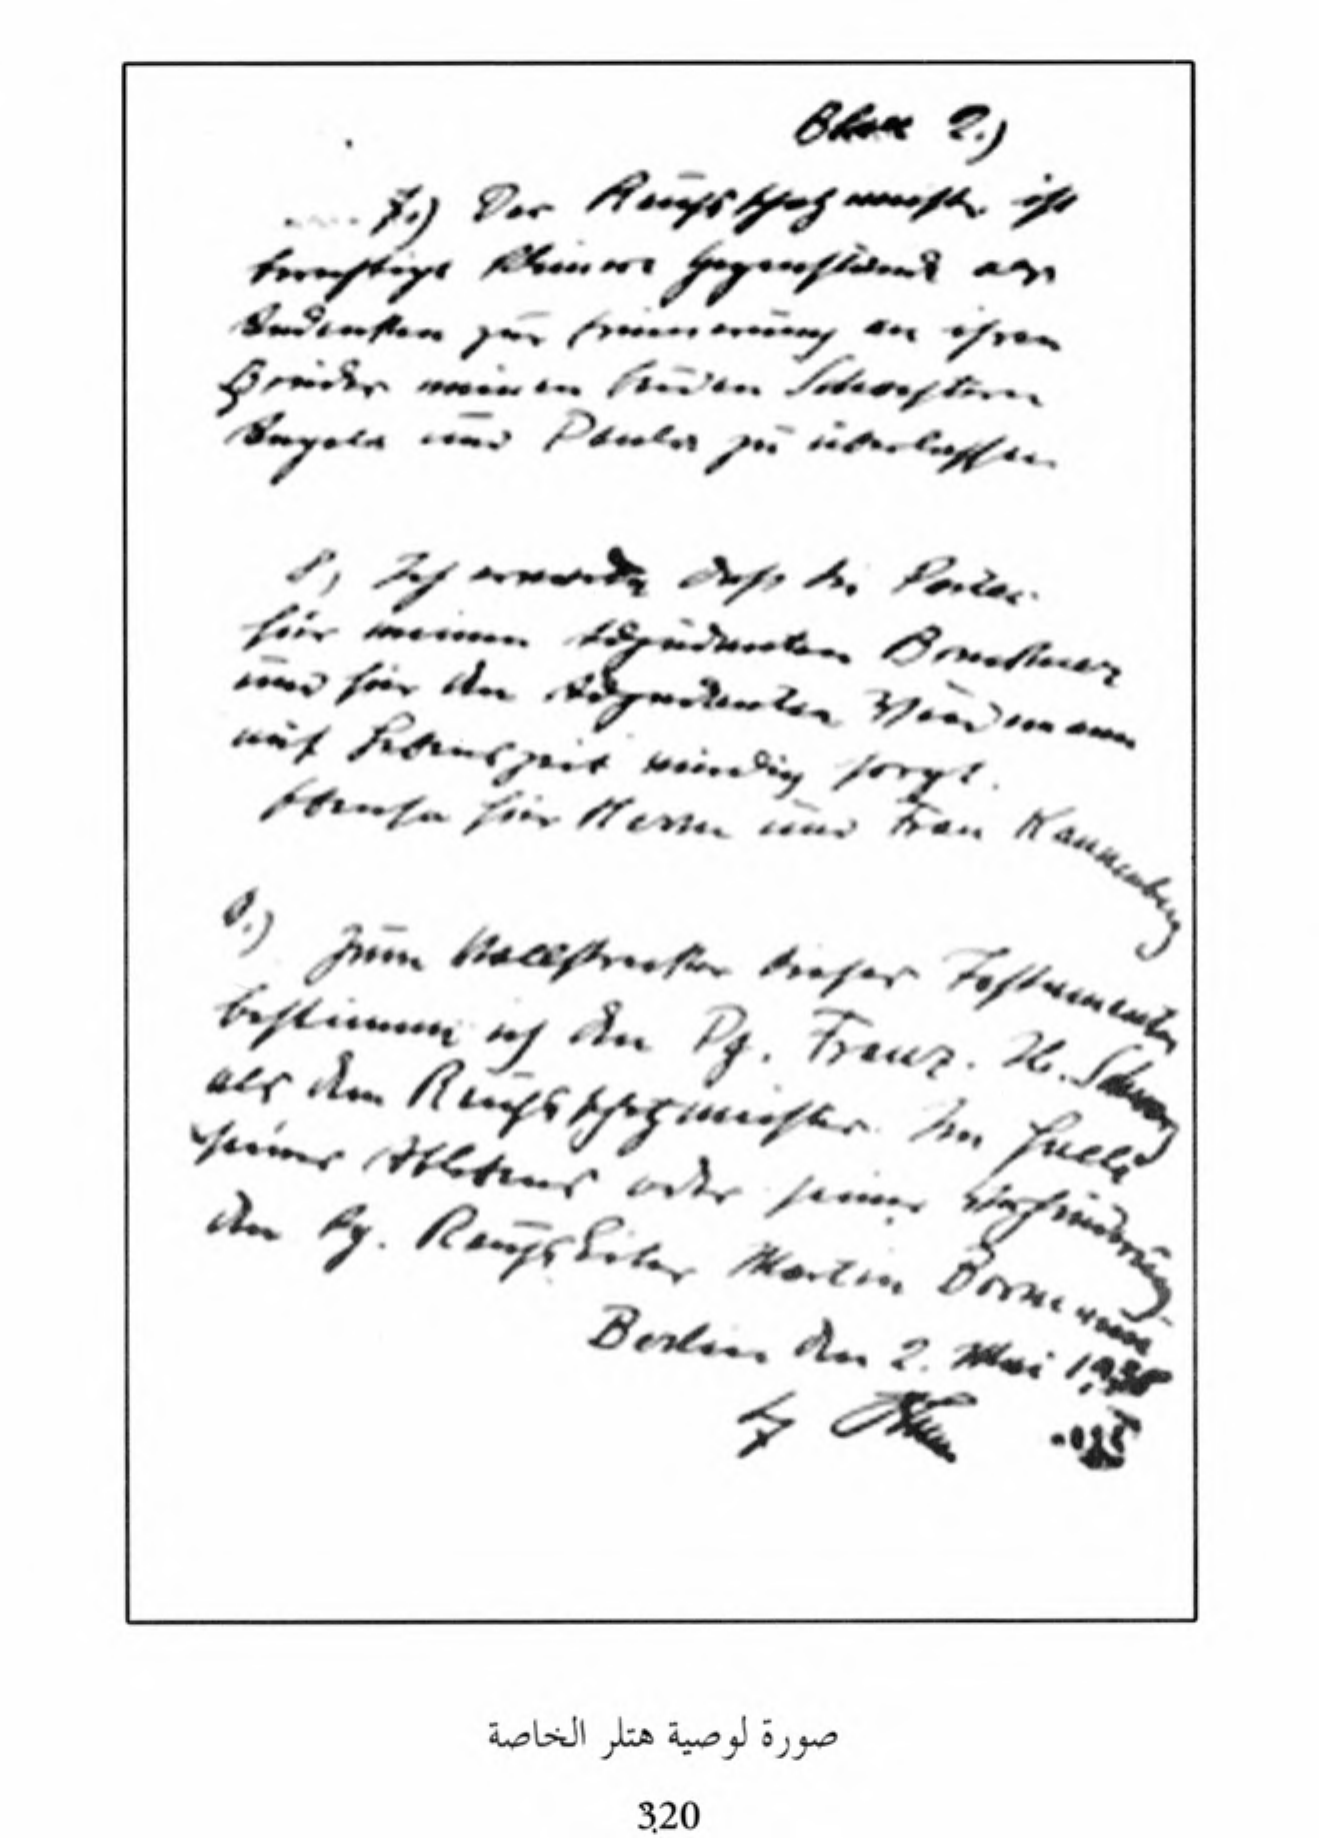 Blatt 2.)
7.) Der Reichsschatzmeister ist
berechtigt kleinere Gegenstände als
Andenken zur Erinnerung an ihren
Bruder meinen beiden Schwestern
Angela und Paula zu überlassen
8, Ich erwarte daß die Partei
für meinen Adjudanten Bruckner
und für den Adjudanten Wiedmann
auf Lebenszeit würdig sorgt.
Ebenso für Herrn und Frau Kannenberg
Zum Vollstrecker dieses Testamentes
bestimme ich den Pg. Franz. X. Schwarz
als dem Reichsschatzmeister. Im Falle
seines Ablebens oder seiner Verhinderung
den Pg. Reichsleiter Martin Bormann
Berlin den 2. Mai 1938
صورة لوصية هتلر الخاصة
320